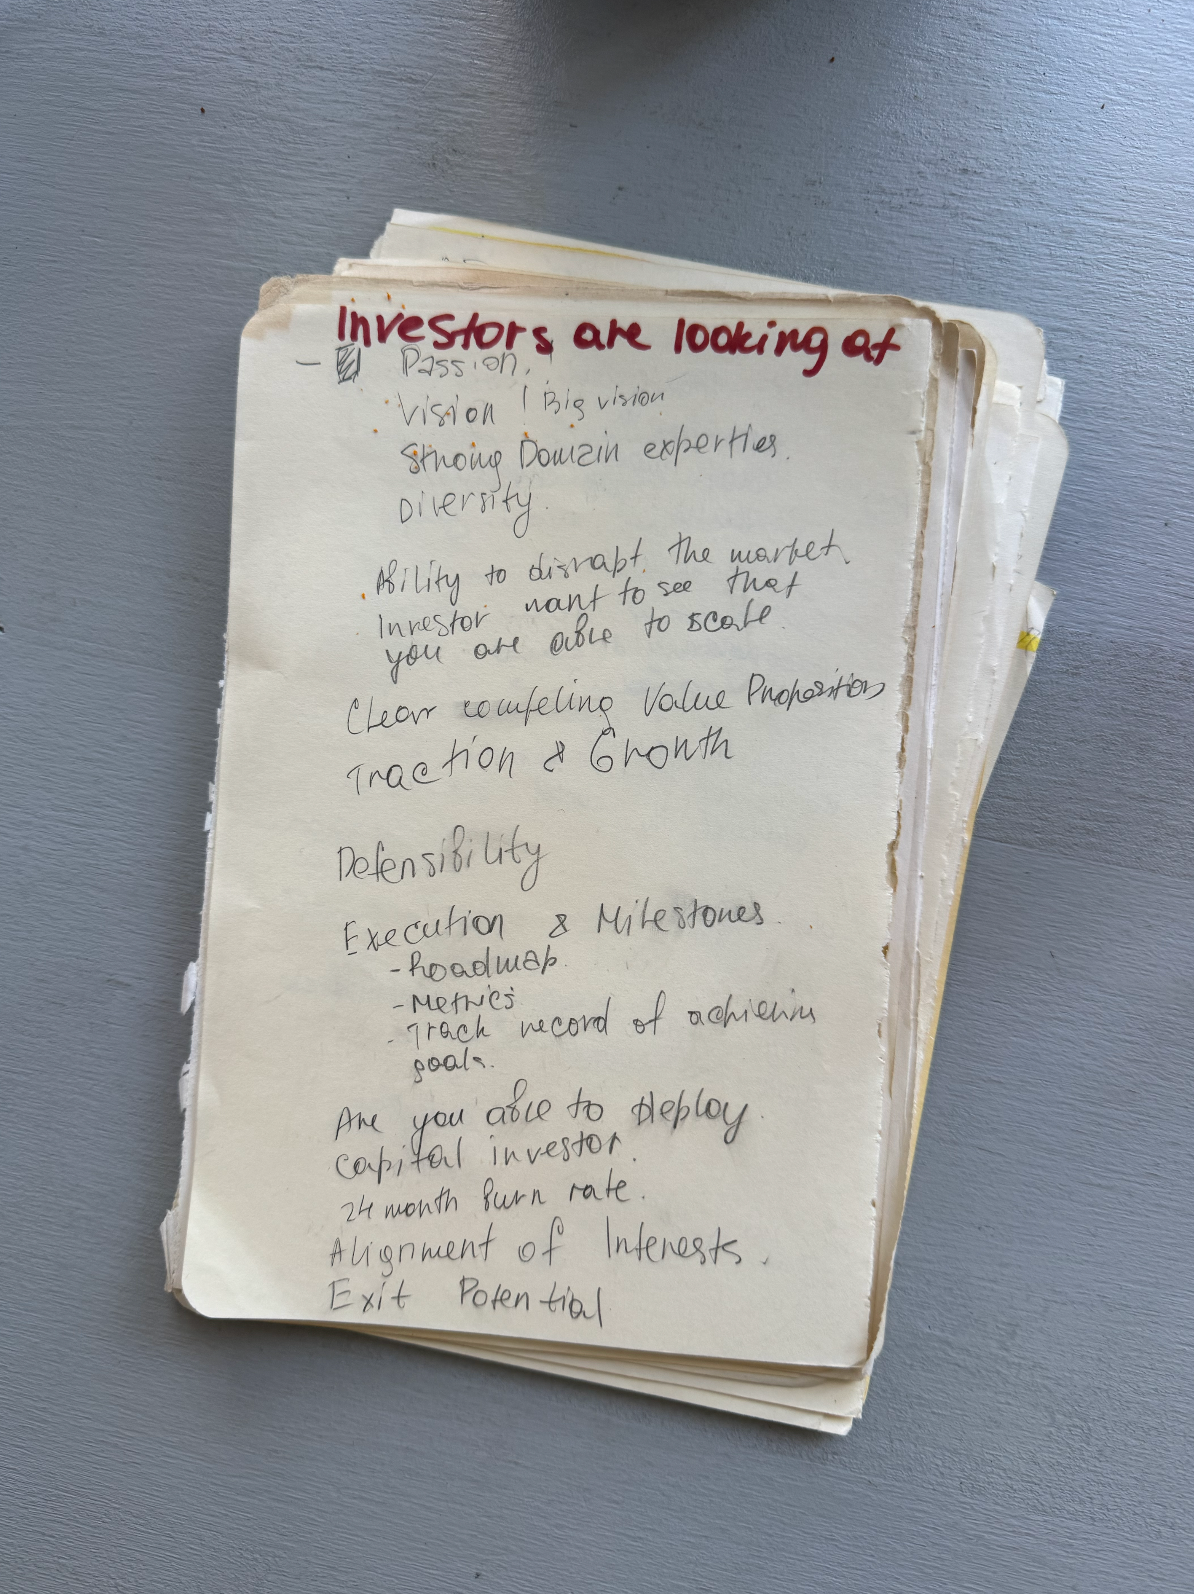 Investors are looking at
- Passion.
Vision ! Big vision
Strong Domain experties.
Diversity.
Ability to disrupt. the market.
Investor want to see that
you are able to scale.
Clear compeling Value Proposition
Traction & Growth
Defensibility
Execution & Milestones.
- Roadmap.
- Metrics
- Track record of achieving
goals.
Are you able to deploy.
capital investor.
24 month burn rate.
Alignment of Interests.
Exit Potential